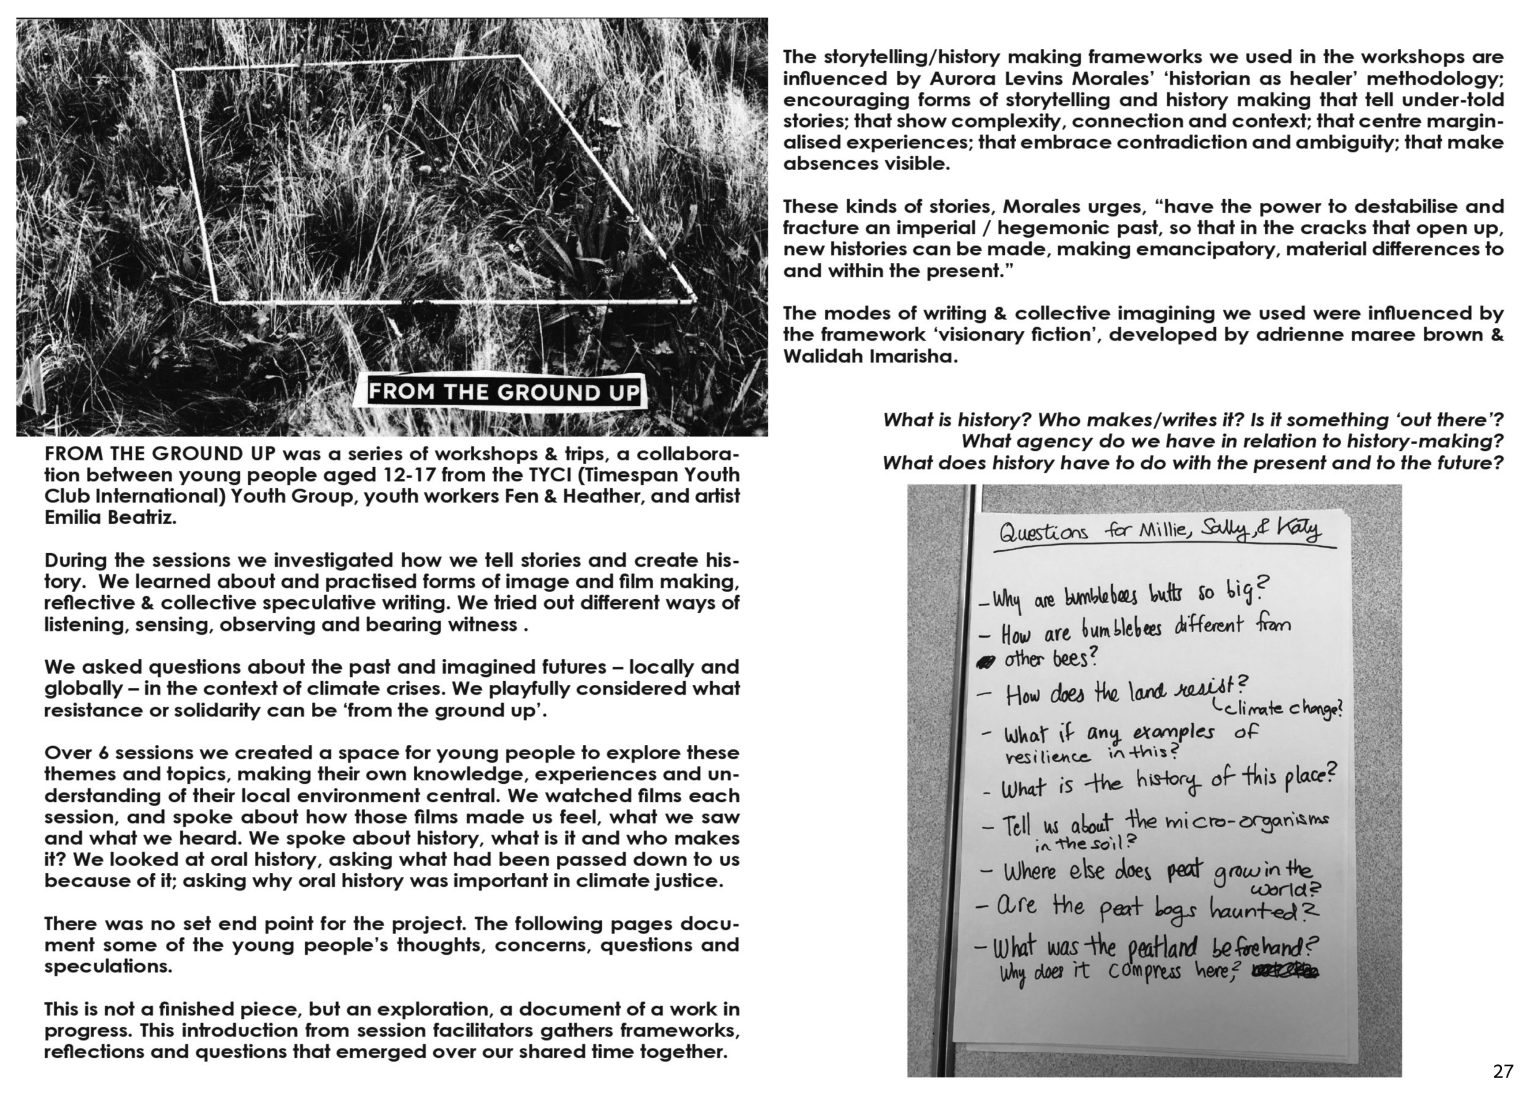 FROM THE GROUND UP
FROM THE GROUND UP was a series of workshops & trips, a collabora-
tion between young people aged 12-17 from the TYCI (Timespan Youth
Club International) Youth Group, youth workers Fen & Heather, and artist
Emilia Beatriz.
During the sessions we investigated how we tell stories and create his-
tory.  We learned about and practised forms of image and film making,
reflective & collective speculative writing. We tried out different ways of
listening, sensing, observing and bearing witness .
We asked questions about the past and imagined futures – locally and
globally – in the context of climate crises. We playfully considered what
resistance or solidarity can be ‘from the ground up’.
Over 6 sessions we created a space for young people to explore these
themes and topics, making their own knowledge, experiences and un-
derstanding of their local environment central. We watched films each
session, and spoke about how those films made us feel, what we saw
and what we heard. We spoke about history, what is it and who makes
it? We looked at oral history, asking what had been passed down to us
because of it; asking why oral history was important in climate justice.
There was no set end point for the project. The following pages docu-
ment some of the young people’s thoughts, concerns, questions and
speculations.
This is not a finished piece, but an exploration, a document of a work in
progress. This introduction from session facilitators gathers frameworks,
reflections and questions that emerged over our shared time together.
The storytelling/history making frameworks we used in the workshops are
influenced by Aurora Levins Morales’ ‘historian as healer’ methodology;
encouraging forms of storytelling and history making that tell under-told
stories; that show complexity, connection and context; that centre margin-
alised experiences; that embrace contradiction and ambiguity; that make
absences visible.
These kinds of stories, Morales urges, “have the power to destabilise and
fracture an imperial / hegemonic past, so that in the cracks that open up,
new histories can be made, making emancipatory, material differences to
and within the present.”
The modes of writing & collective imagining we used were influenced by
the framework ‘visionary fiction’, developed by adrienne maree brown &
Walidah Imarisha.
What is history? Who makes/writes it? Is it something ‘out there’?
What agency do we have in relation to history-making?
What does history have to do with the present and to the future?
Questions for Millie, Sally, & Katy
- Why are bumblebees butts so big?
- How are bumblebees different from
other bees?
- How does the land resist?
climate change?
- What if any examples of
resilience in this?
- What is the history of this place?
- Tell us about the micro-organisms
in the soil?
- Where else does peat grow in the
world?
- Are the peat bogs haunted?
- What was the peatland beforehand?
Why does it compress here?
27